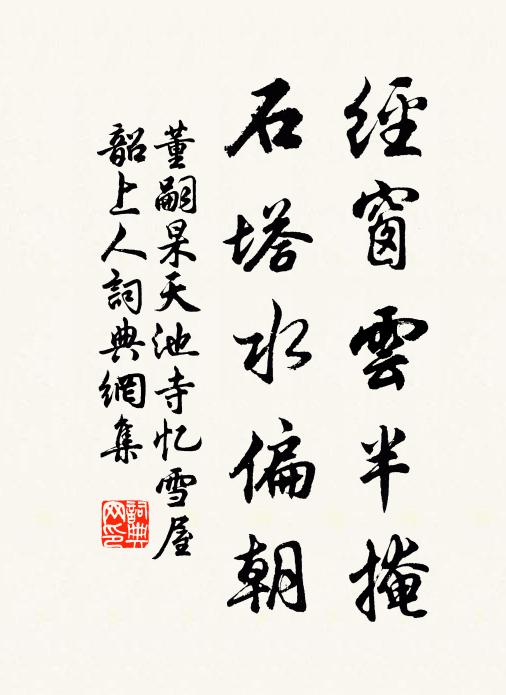 經窗雲半掩
石塔水偏朝
董嗣杲天池寺忆雪屋
韶上人詞典網集
詞典网印